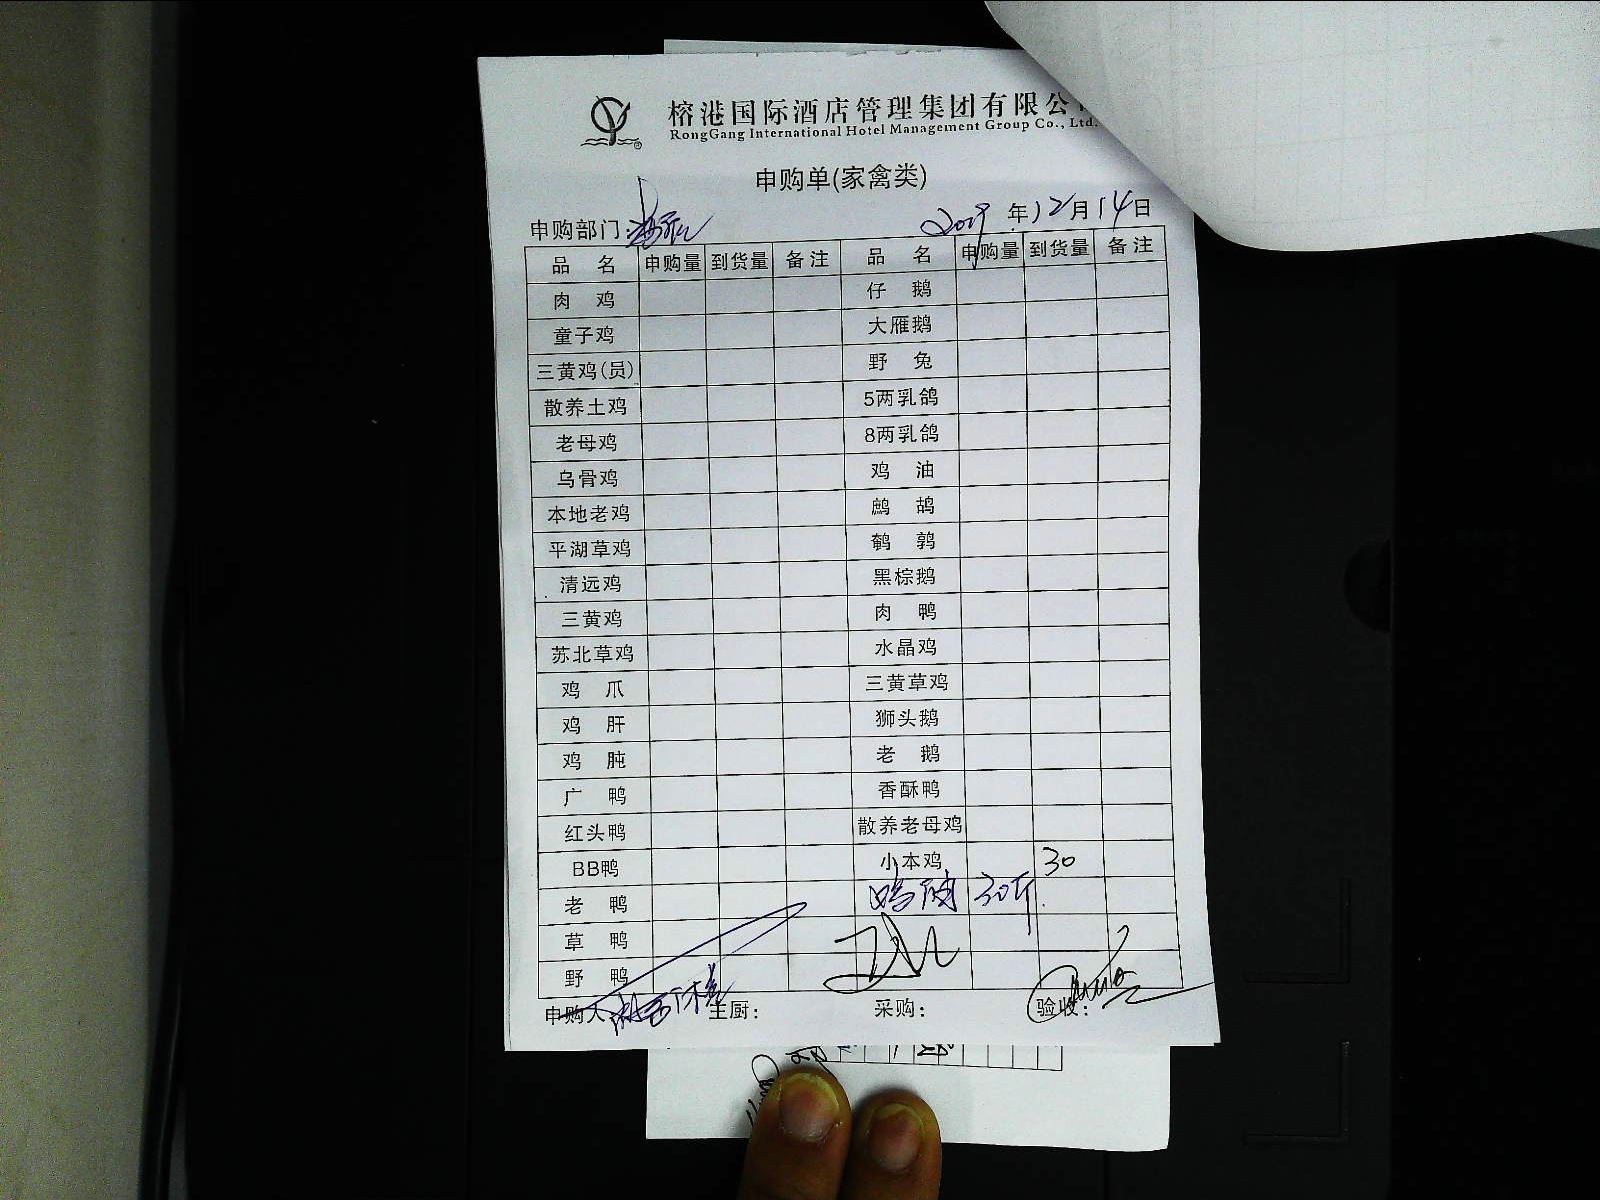 榕港国际酒店管理集团有限公
RongGang International Hotel Management Group Co., Ltd.
申购单(家禽类)
申购部门: 2019年12月14日
品 名 申购量 到货量 备注 品 名 申购量 到货量 备注
肉 鸡 仔 鹅
童子鸡 大雁鹅
三黄鸡(员) 野 兔
散养土鸡 5两乳鸽
老母鸡 8两乳鸽
乌骨鸡 鸡 油
本地老鸡 鹧 鸪
平湖草鸡 鹌 鹑
清远鸡 黑棕鹅
三黄鸡 肉 鸭
苏北草鸡 水晶鸡
鸡 爪 三黄草鸡
鸡 肝 狮头鹅
鸡 肫 老 鹅
广 鸭 香酥鸭
红头鸭 散养老母鸡
BB鸭 小本鸡 30
老 鸭 30斤
草 鸭
野 鸭
申购人: 主厨: 采购: 验收: